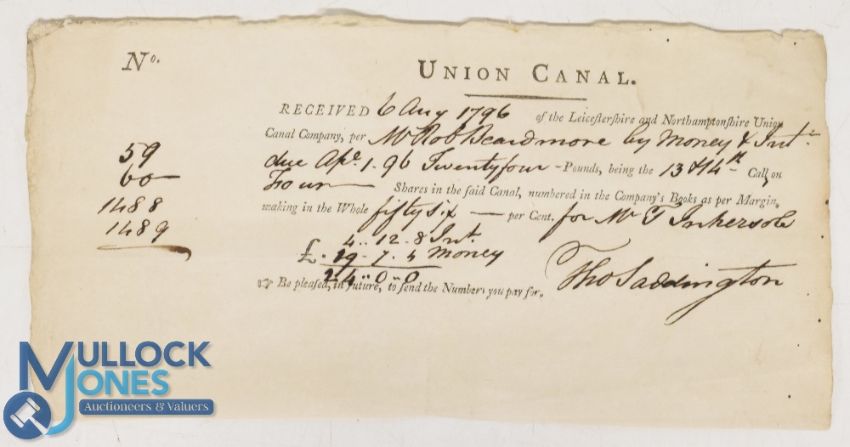 No.
UNION CANAL.
RECEIVED 6 Aug 1796 of the Leicestershire and Northamptonshire Union
Canal Company, per Mr Rob Beardmore by Money & Int.
due Apl. 1. 96 Twentyfour - Pounds, being the 13 & 14th Call on
Four Shares in the said Canal, numbered in the Company's Books as per Margin,
making in the Whole fifty six — per Cent. for Mr T Inkersole
59
60
1488
1489
4 .. 12 . 8 Int.
£. 19 . 7 . 4 Money
24 .. 0 .. 0
Tho Saddington
☞ Be pleased, in future, to send the Numbers you pay for.
MULLOCK
JONES
Auctioneers & Valuers